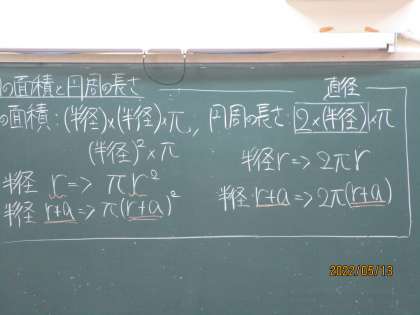 の面積と円周の長さ
直径
の面積:(半径)×(半径)×π, 円周の長さ:2×(半径)×π
(半径)²×π
半径r=>2πr
半径 r=>πr²
半径 r+a=>2π(r+a)
半径 r+a=>π(r+a)²
2022/05/13